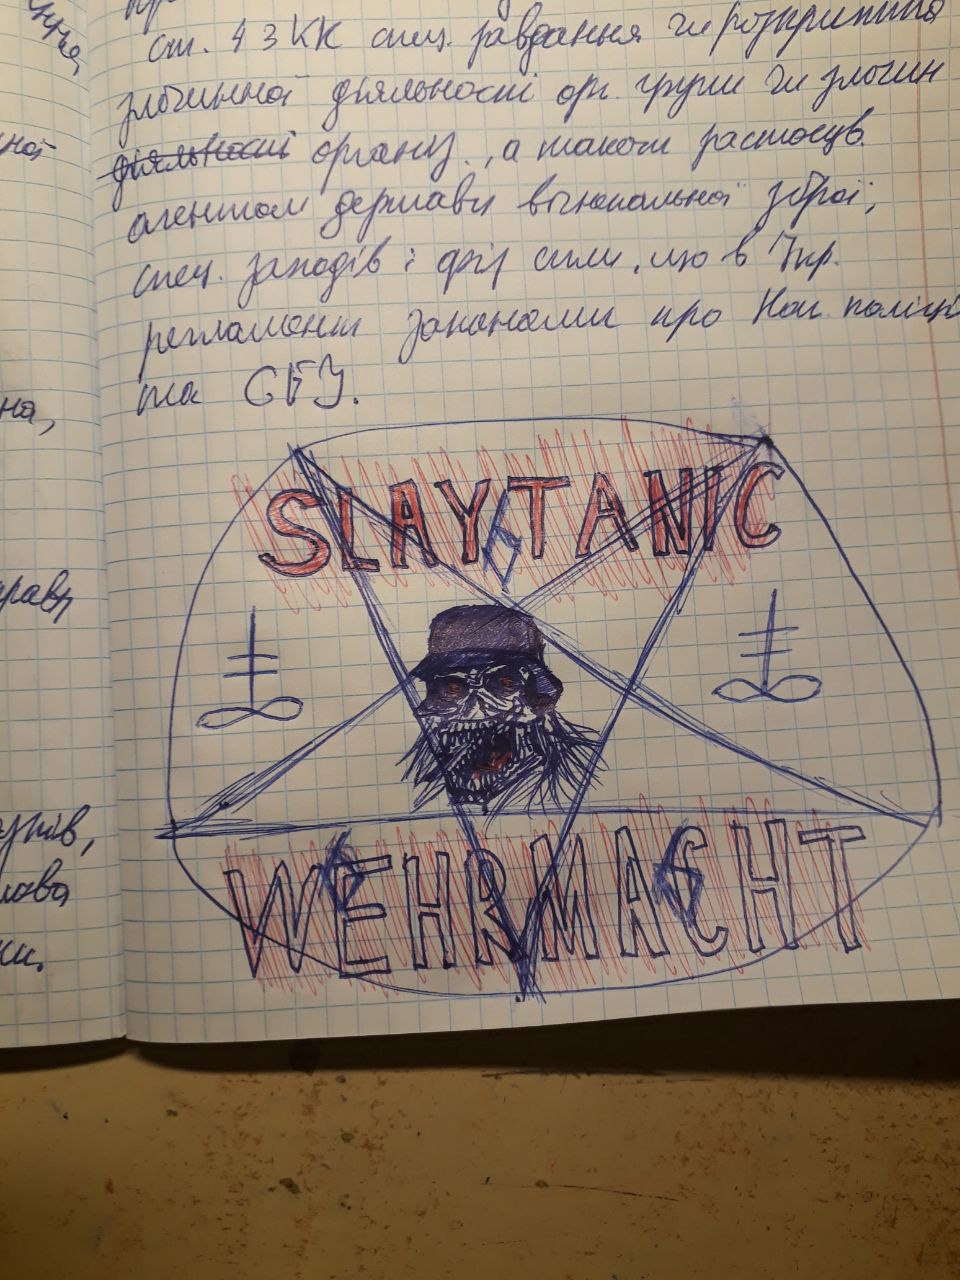 ст. 43 КК спец. завдання чи розкриття
злочинної діяльності орг. групи чи злочин
діяльності організ., а також застосув.
агентом держави вогнепальної зброї,
спец. заходів і фіз сили, що в Укр.
регламент законами про Нац. поліці
та СБУ.
SLAYTANIC
6
WEHRMACHT
6 6
на,
лова
ки.